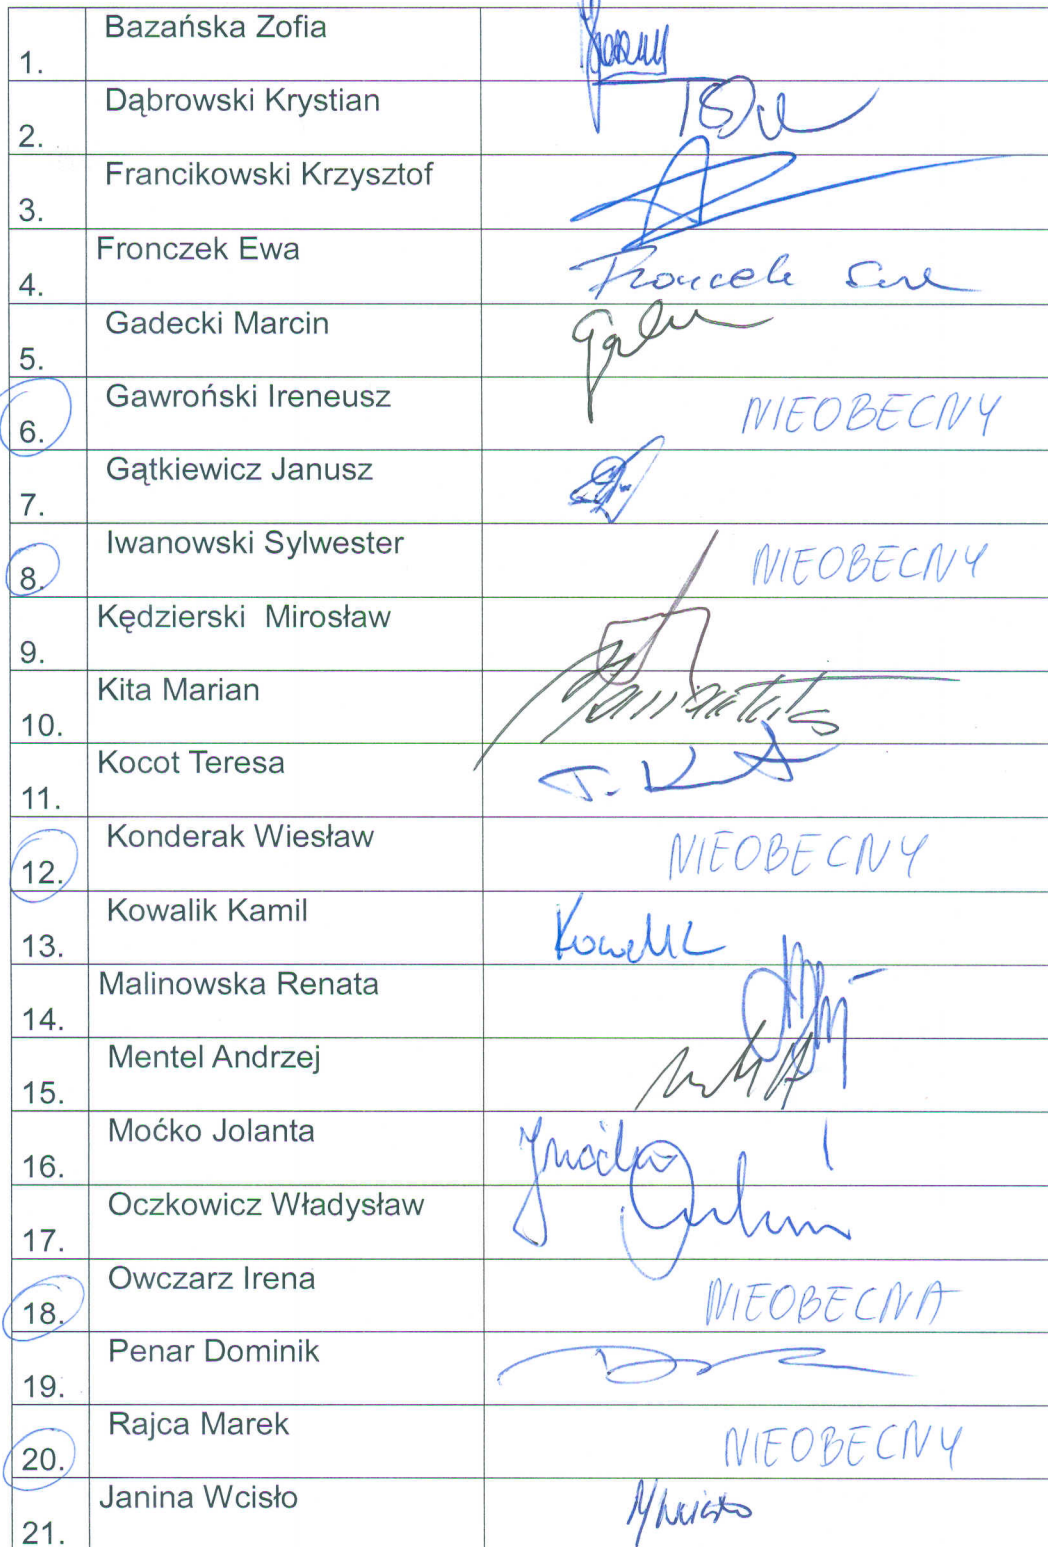 1. Bazańska Zofia
2. Dąbrowski Krystian
3. Francikowski Krzysztof
4. Fronczek Ewa
5. Gadecki Marcin
6. Gawroński Ireneusz NIEOBECNY
7. Gątkiewicz Janusz
8. Iwanowski Sylwester NIEOBECNY
9. Kędzierski Mirosław
10. Kita Marian
11. Kocot Teresa T. K
12. Konderak Wiesław NIEOBECNY
13. Kowalik Kamil Kowalik
14. Malinowska Renata
15. Mentel Andrzej
16. Moćko Jolanta JMoćko
17. Oczkowicz Władysław
18. Owczarz Irena NIEOBECNA
19. Penar Dominik
20. Rajca Marek NIEOBECNY
21. Janina Wcisło